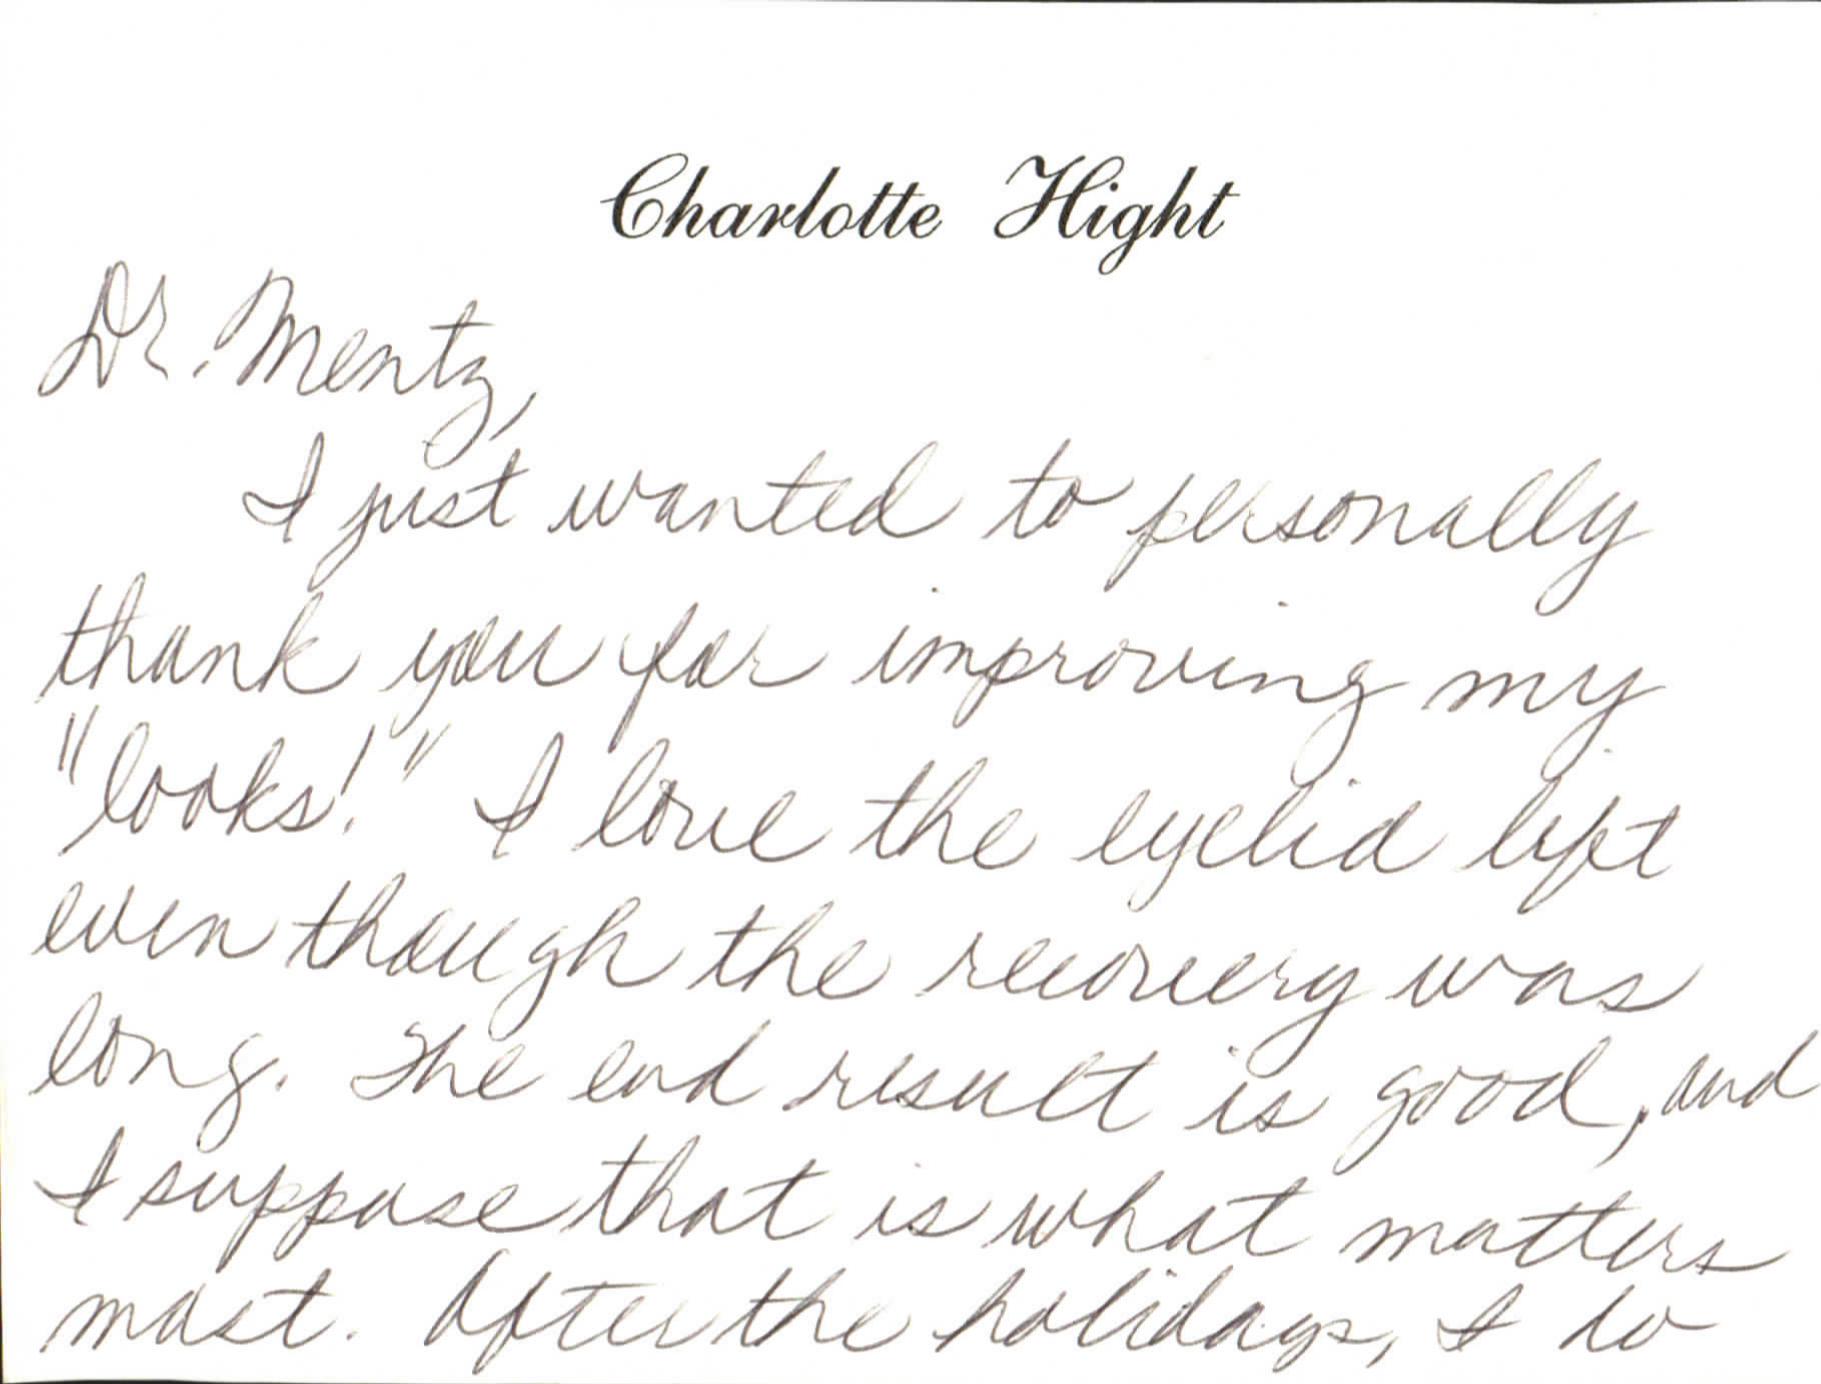 Charlotte Hight
Dr. Mentz,
I just wanted to personally
thank you for improving my
"looks!" I love the eyelid lift
even though the recovery was
long. The end result is good, and
I suppose that is what matters
most. After the holidays, I do